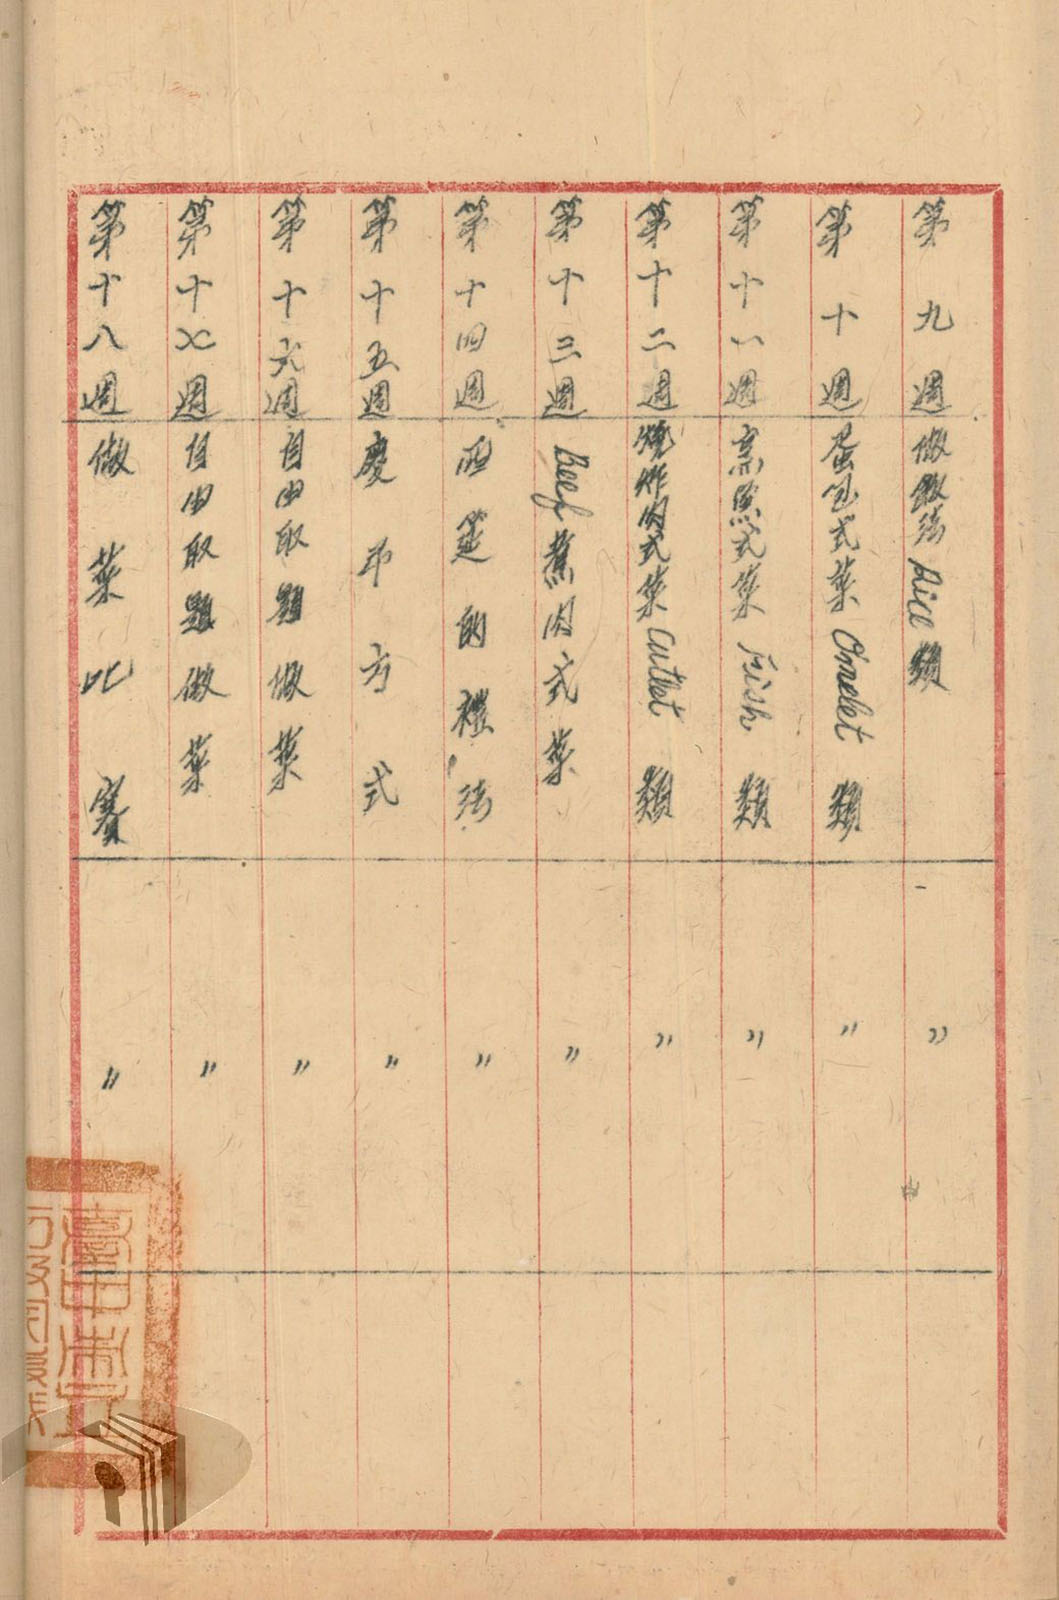 第九週 做飯法 Rice 類 〃
第十週 蛋包式菜 Omelet 類 〃
第十一週 烹魚式菜 Fish 類 〃
第十二週 燒炸肉式菜 Cutlet 類 〃
第十三週 Beef 煮肉式菜 〃
第十四週 西筵的禮法 〃
第十五週 慶弔方式 〃
第十六週 自由取題做菜 〃
第十七週 自由取題做菜 〃
第十八週 做菜比賽 〃
臺中市